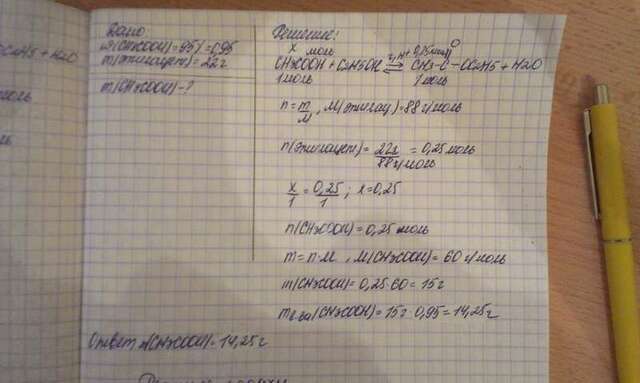 OC2H5 + H2O
моль
Дано
ω(CH3COOH)=95%=0,95
m(этилацет)=22г
m(CH3COOH)-?
Решение:
x моль 0,25 моль O
CH3COOH + C2H5OH ⇄ CH3-C-OC2H5 + H2O
1 моль 1 моль
n=m/M, M(этилац)=88 г/моль
n(этилацет)=22г/88г/моль=0,25 моль
x/1=0,25/1; x=0,25
n(CH3COOH)=0,25 моль
m=n·M, M(CH3COOH)=60 г/моль
m(CH3COOH)=0,25·60=15г
mв-ва(CH3COOH)=15г·0,95=14,25г
Ответ m(CH3COOH)=14,25г